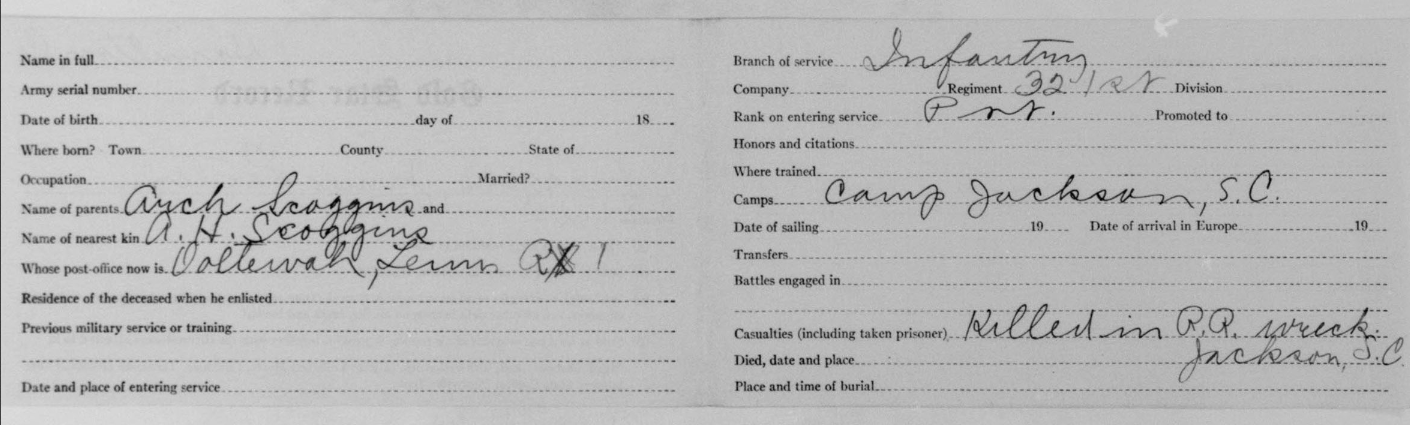 Name in full
Army serial number
Date of birth day of 18
Where born? Town County State of
Occupation Married?
Name of parents Arch Scoggins and
Name of nearest kin A. H. Scoggins
Whose post-office now is Ooltewah, Tenn R 1
Residence of the deceased when he enlisted
Previous military service or training
Date and place of entering service
Branch of service Infantry
Company Regiment 321st Division
Rank on entering service Pvt. Promoted to
Honors and citations
Where trained
Camps Camp Jackson, S.C.
Date of sailing 19 Date of arrival in Europe 19
Transfers
Battles engaged in
Casualties (including taken prisoner) Killed in R.R. wreck.
Jackson, S.C.
Died, date and place
Place and time of burial